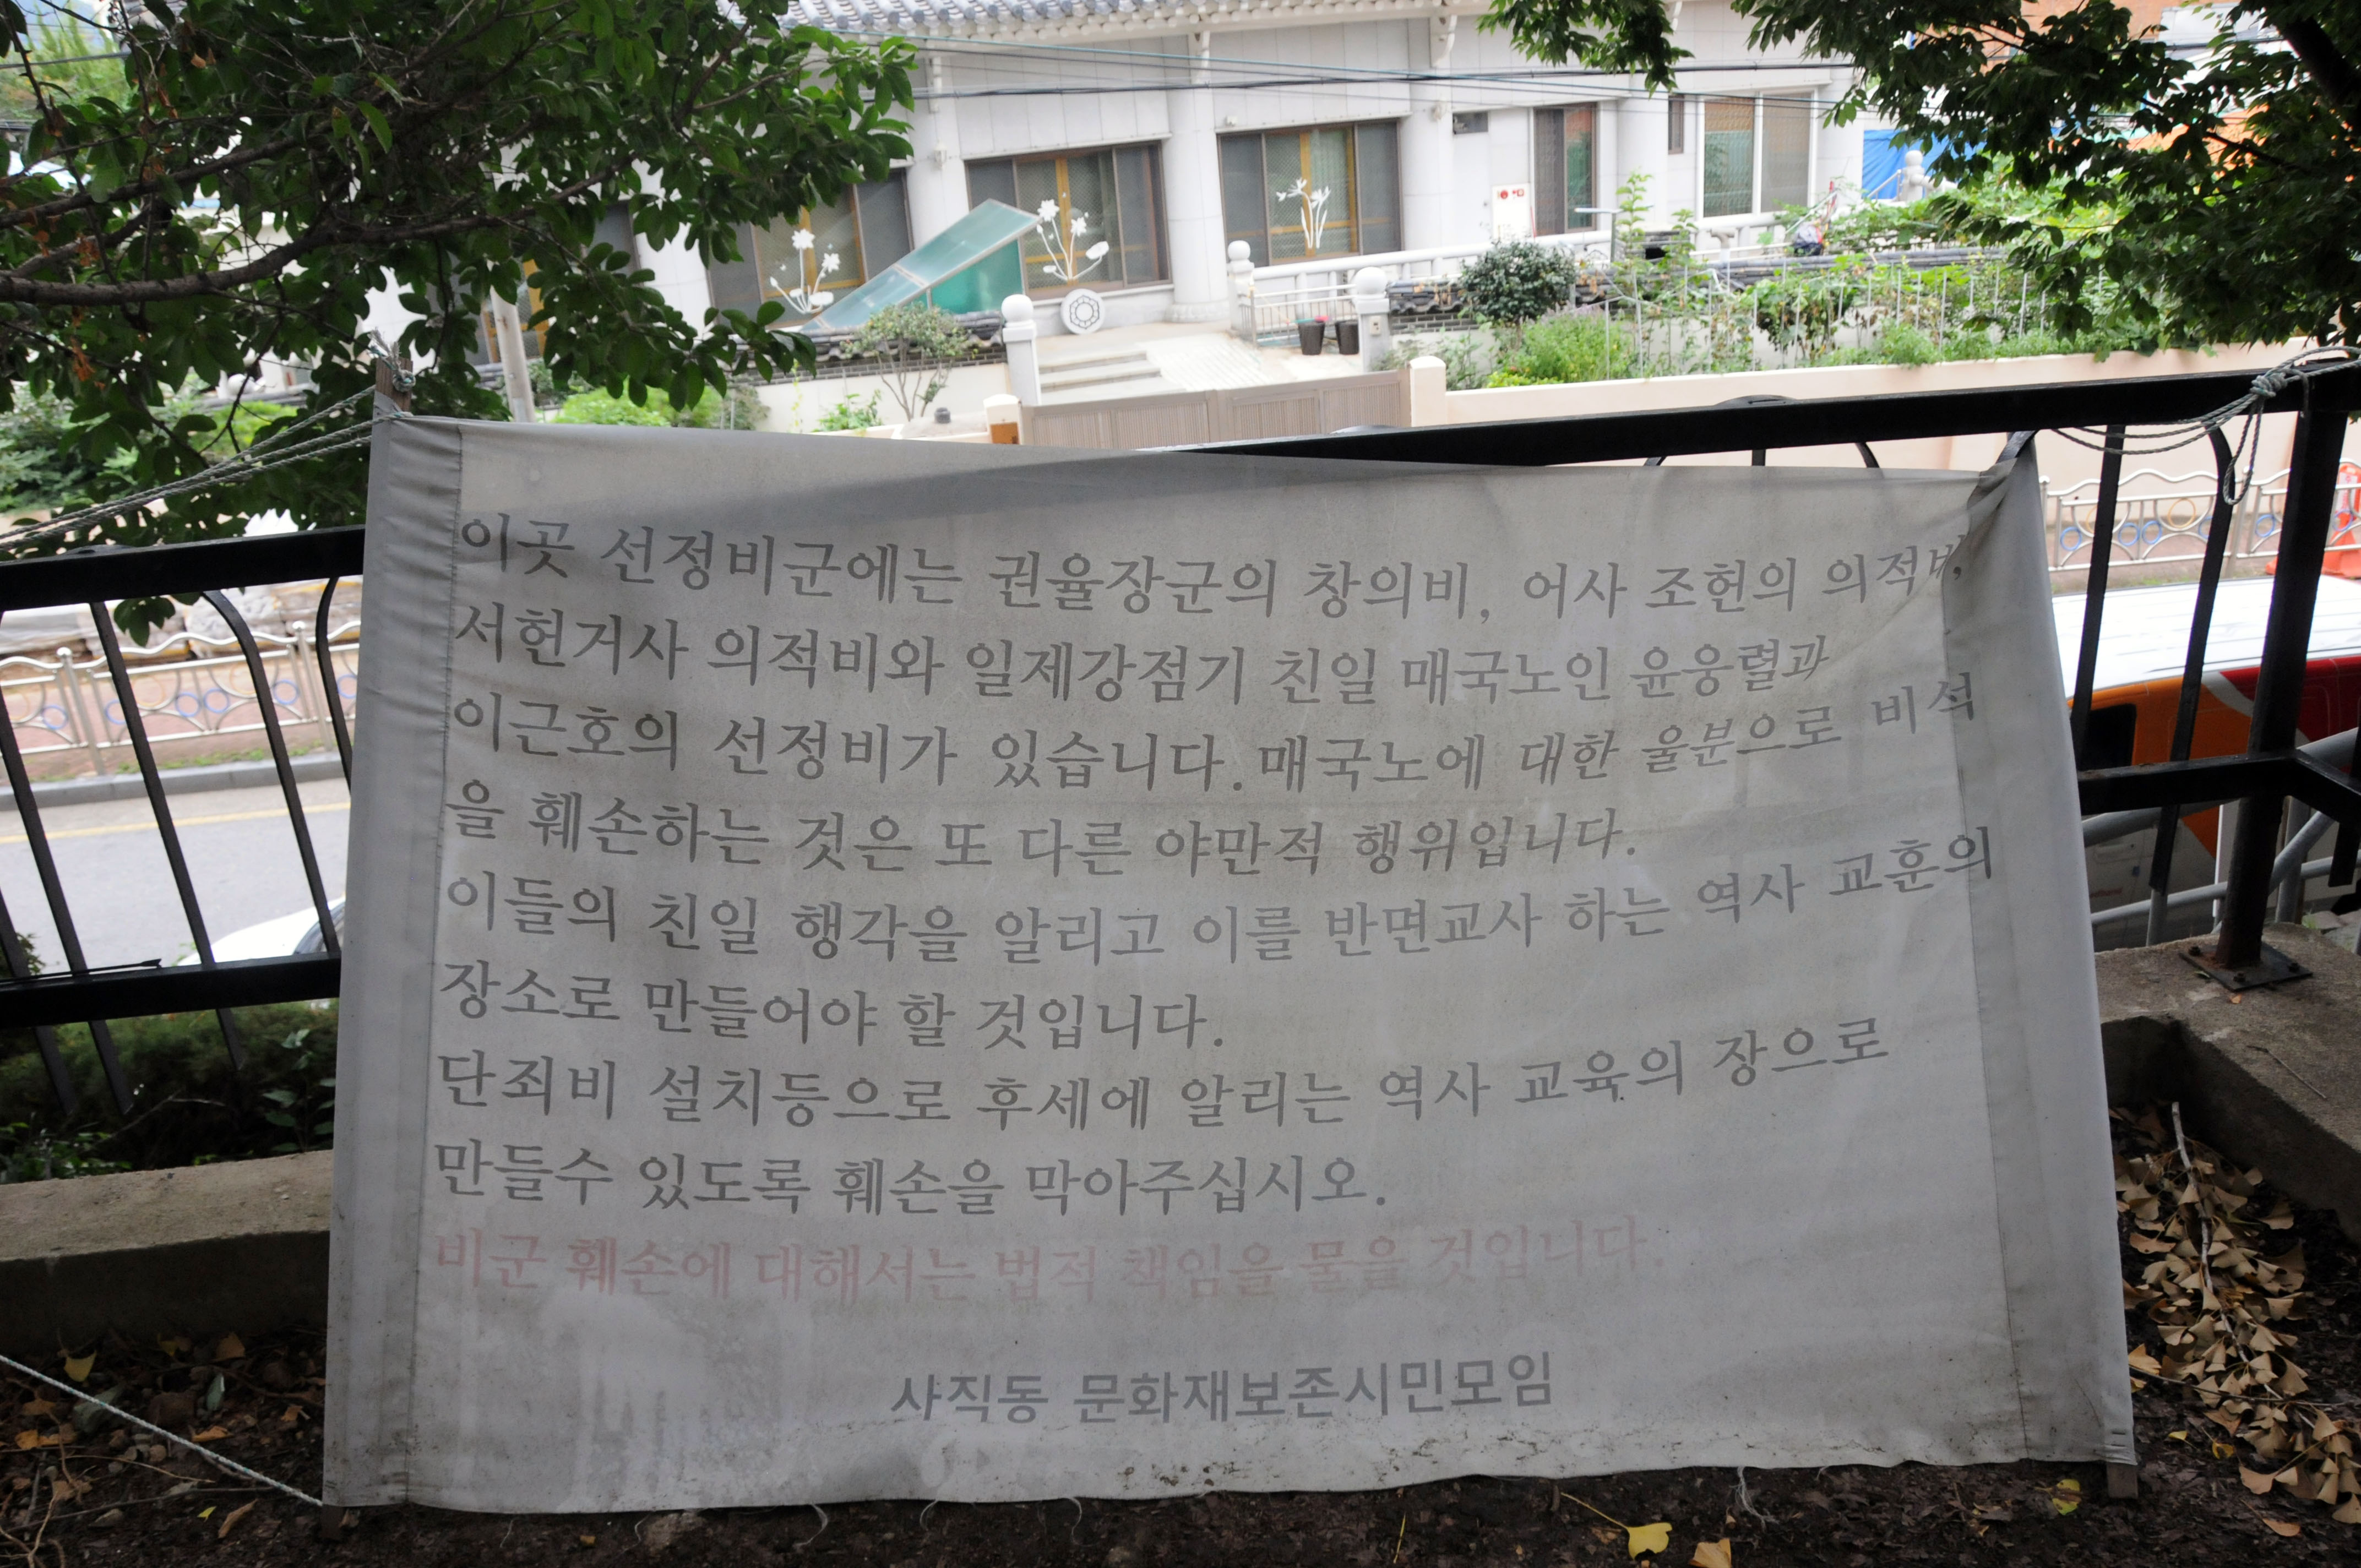 이곳 선정비군에는 권율장군의 창의비, 어사 조헌의 의적비,
서헌거사 의적비와 일제강점기 친일 매국노인 윤웅렬과
이근호의 선정비가 있습니다. 매국노에 대한 울분으로 비석
을 훼손하는 것은 또 다른 야만적 행위입니다.
이들의 친일 행각을 알리고 이를 반면교사 하는 역사 교훈의
장소로 만들어야 할 것입니다.
단죄비 설치등으로 후세에 알리는 역사 교육의 장으로
만들수 있도록 훼손을 막아주십시오.
비군 훼손에 대해서는 법적 책임을 물을 것입니다.
사직동 문화재보존시민모임